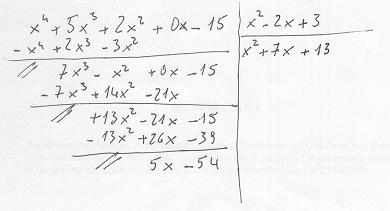 x⁴ + 5x³ + 2x² + 0x - 15 | x² - 2x + 3
- x⁴ + 2x³ - 3x² | x² + 7x + 13
// 7x³ - x² + 0x - 15
- 7x³ + 14x² - 21x
// + 13x² - 21x - 15
- 13x² + 26x - 39
// 5x - 54